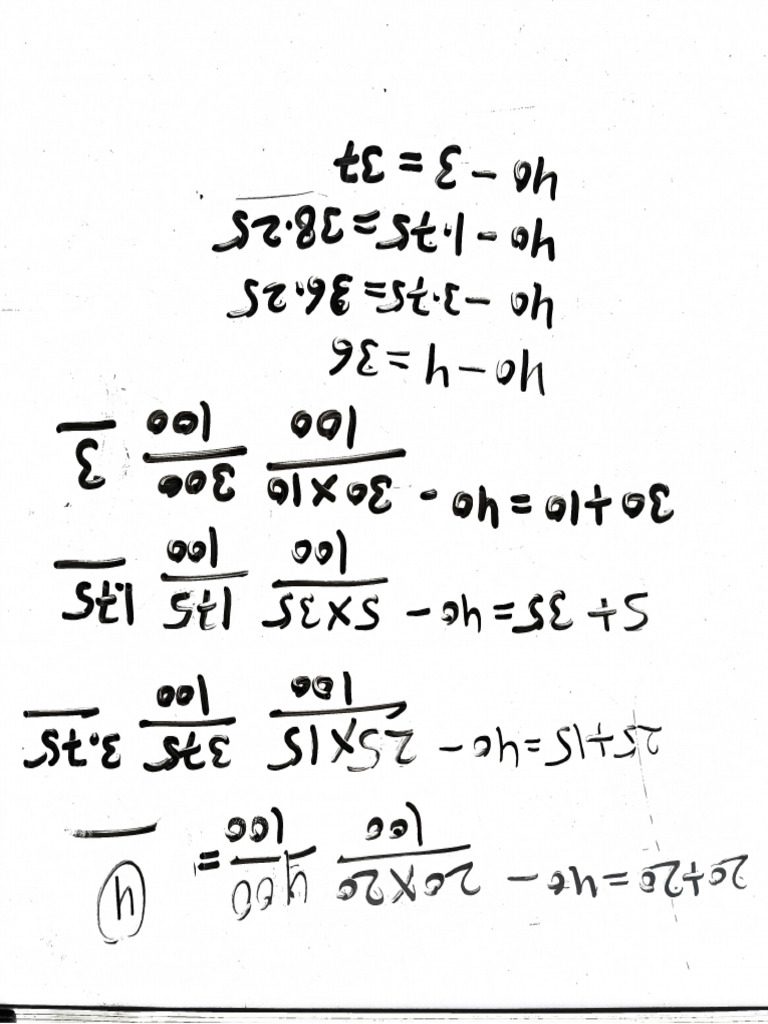 20+20=40 - 20×20 400 = 4
100 100
25+15=40 - 25×15 375 3.75
100 100
5+35=40 - 5×35 175 1.75
100 100
30+10=40 - 30×10 300 3
100 100
40-4=36
40-3.75=36.25
40-1.75=38.25
40-3=37